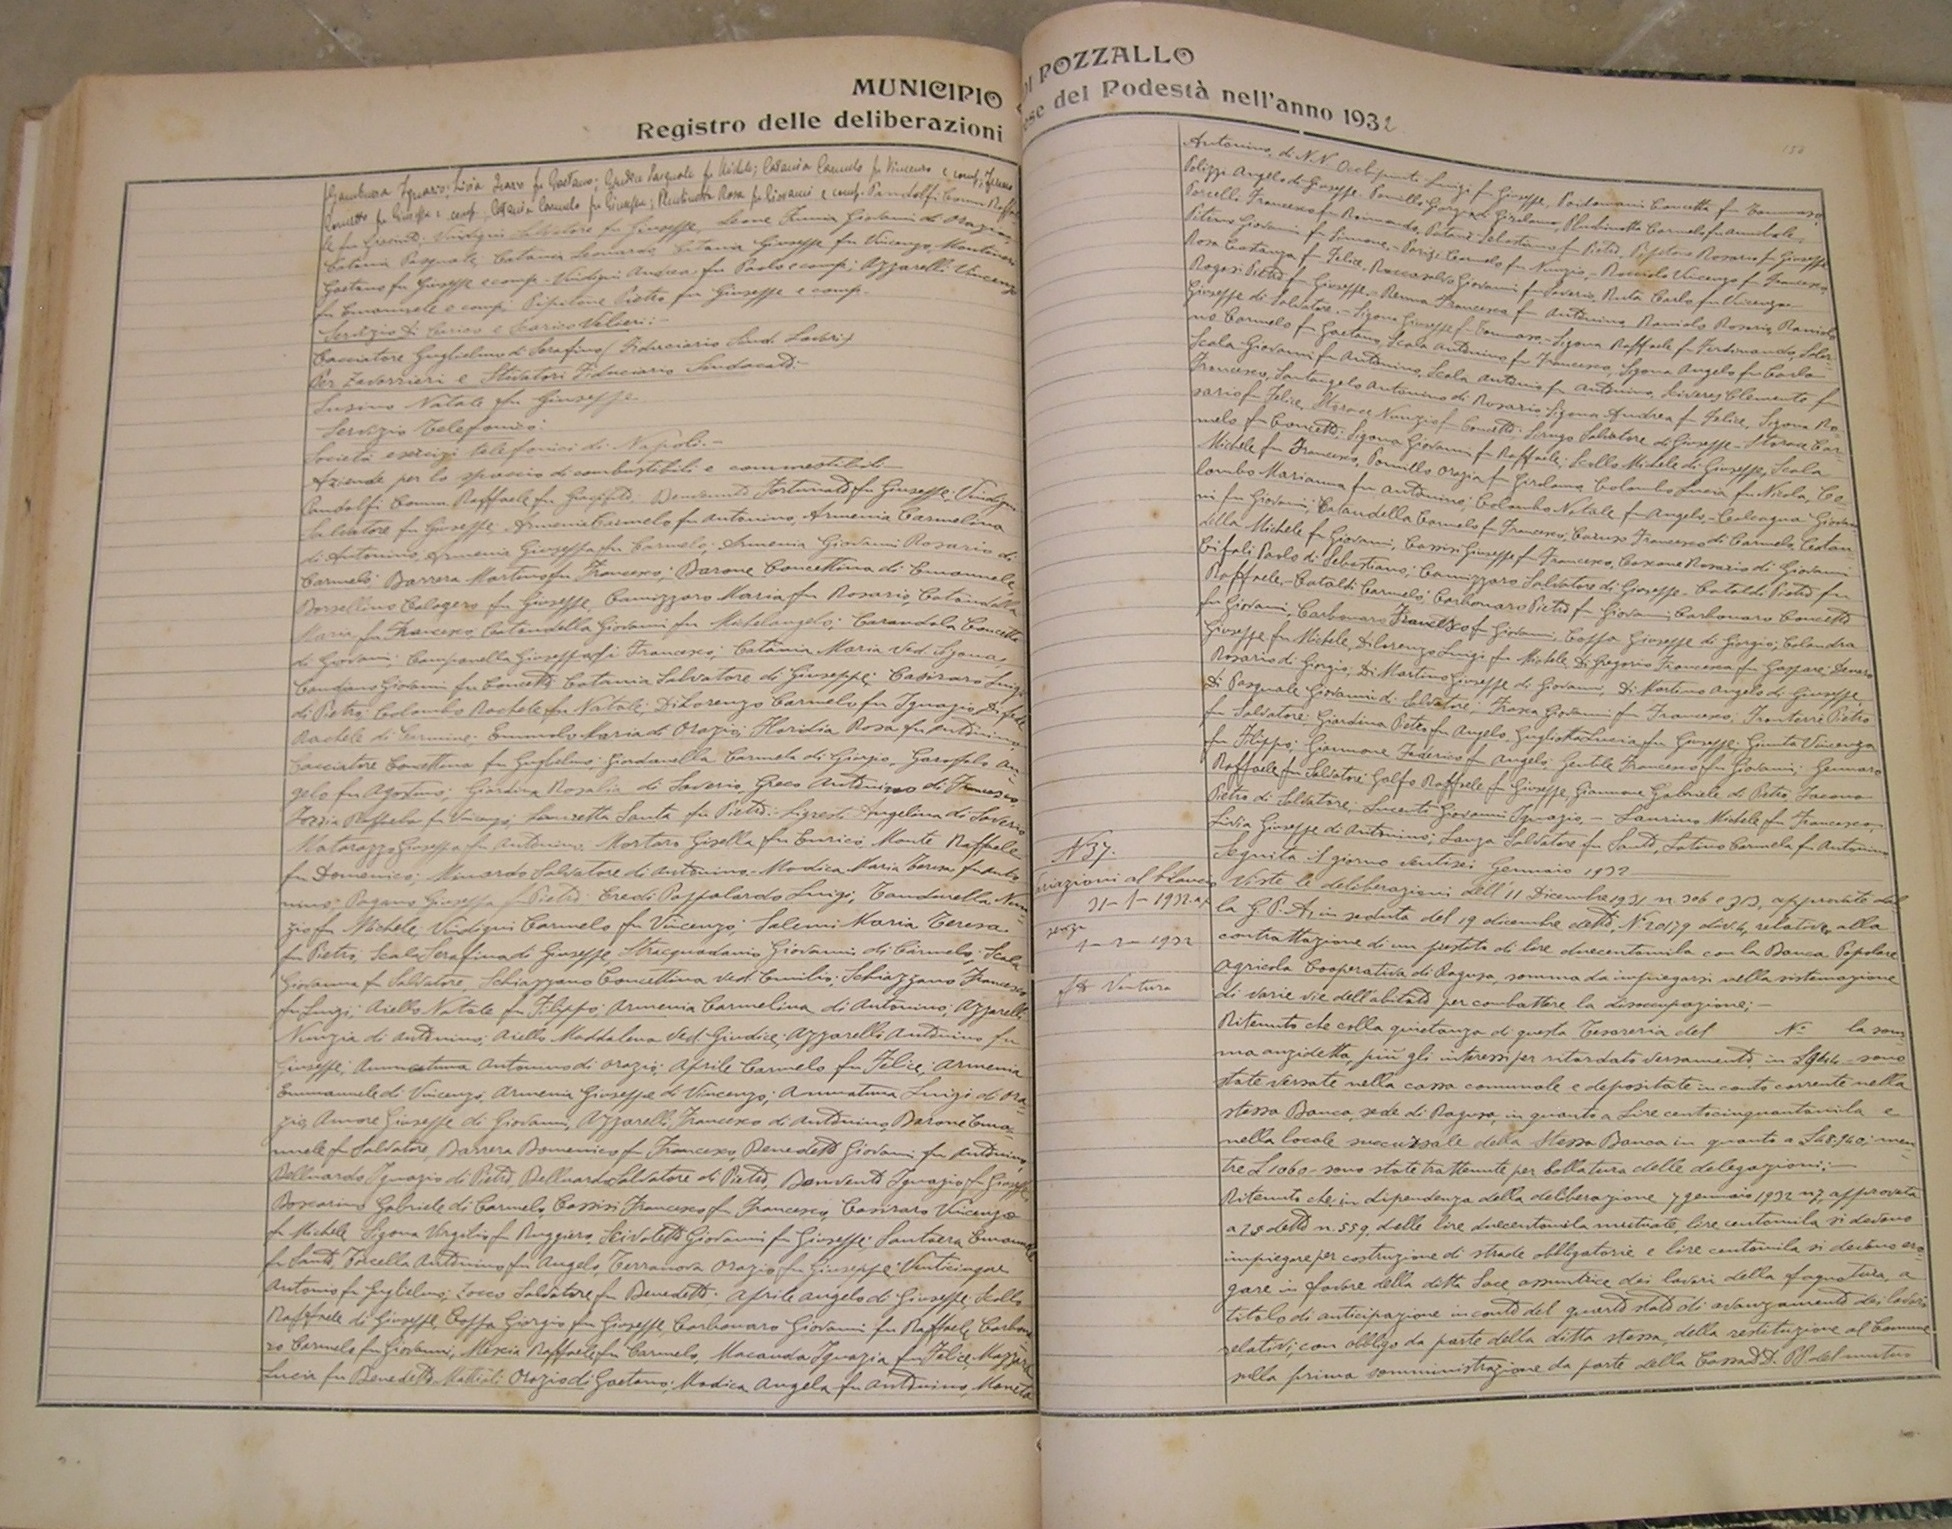 MUNICIPIO
Registro delle deliberazioni
Gambuzza Ignazio; Livia fu Gaetano; Giudice Pasquale fu Catania Carmelo fu Vincenzo e comp;
fu Giuseppe e comp. Catania Carmelo fu Giuseppe; Rosa fu Giovanni e comp. Pandolfi Comm Raffae
le fu Vindigni Salvatore fu Giuseppe, Leone Giovanni di Orazio,
Catania Pasquale, Catania Leonardo, Catania Giuseppe fu Vincenzo,
Gaetano fu Giuseppe e comp. Vindigni Andrea fu Paolo e comp; Azzarelli Vincenzo
fu Emanuele e comp. Pipitone Pietro fu Giuseppe e comp.
Servizio di Carico e Scarico Velieri:-
Cacciatore Guglielmo di Serafino (Fiduciario Sind. Lavori)
Per Zavorrieri e Stivatori Fiduciario Sindacati-
Susino Natale fu Giuseppe
Servizio Telefonico:
Società esercizi telefonici di Napoli.-
Aziende per lo spaccio di combustibili e commestibili-
Pandolfi Comm. Raffaele fu Benvenuto Fortunato fu Giuseppe, Vindigni
Salvatore fu Giuseppe, Armenia Carmelo fu Antonino, Armenia Carmelina
di Antonino, Armenia Giuseppa fu Carmelo; Armenia Giovanni Rosario di
Carmelo; Barrera Martino fu Francesco; Barone Concettina di Emanuele,
Borsellino Calogero fu Giuseppe, Cannizzaro Maria fu Rosario, Catandella
Maria fu Francesco, Catandella Giovanni fu Michelangelo; Carandola Concetta
di Giovanni; Campanella Giuseppa di Francesco; Catania Maria Ved. Sigona,
Giovanni fu Concetto Catania Salvatore di Giuseppe; Casiraro Luigi
di Pietro; Colombo Rachele fu Natale; Di Lorenzo Carmelo fu Ignazio,
Rachele di Carmine; Emmolo Maria di Orazio; Floridia Rosa fu Antonino
Cacciatore Concettina fu Guglielmo; Giordanella Carmela di Giorgio, Garofalo An-
gelo fu Agostino; Giardina Rosalia di Saverio, Greco Antonino di Francesco
Raffaele fu Vincenzo, Lauretta Santa fu Pietro; Ligresti Angelina di Saverio
Matarazzo Giuseppa fu Antonino, Mortaro Gisella fu Enrico, Monte Raffaele
fu Domenico; Minardo Salvatore di Antonino.- Modica Maria Teresa fu Anto
nino; Pagano Giuseppa fu Pietro; Eredi Pappalardo Luigi; Nun-
zio fu Michele, Vindigni Carmelo fu Vincenzo; Salemi Maria Teresa
fu Pietro, Scala Serafina di Giuseppe Stracquadanio Giovanni di Carmelo; Scala
Giovanna fu Salvatore, Schiazzano Concettina ved. Emilio; Schiazzano Francesco
fu Luigi; Aiello Natale fu Filippo; Armenia Carmelina di Antonino; Azzarelli
Nunzia di Antonino; Aiello Maddalena Ved. Giudice; Azzarelli Antonino fu
Giuseppe; Ammatuna Antonino di Orazio; Aprile Carmelo fu Felice; Armenia
Emmanuele di Vincenzo, Armenia Giuseppe di Vincenzo; Ammatuna Luigi di Ora-
zio, Amore Giuseppe di Giovanni, Azzarelli Francesco di Antonino Barone Ema-
nuele fu Salvatore, Barrera Domenico fu Francesco, Benedetto Giovanni fu Antonino
Belluardo Ignazio di Pietro, Belluardo Salvatore di Pietro, Benvenuto Ignazio fu Giuseppe
Boscarino Gabriele di Carmelo, Cassisi Francesco fu Francesco; Casiraro Vincenzo
fu Michele Sigona Virgilio fu Ruggiero, Scivoletto Giovanni fu Giuseppe; Santaera Emanuele
fu Santo, Torcella Antonino fu Angelo, Terranova Orazio fu Giuseppe; Venticinque
Antonio fu Guglielmo; Zocco Salvatore fu Benedetto; Aprile Angelo di Giuseppe, Scollo
Raffaele di Giuseppe, Coppa Giorgio fu Giuseppe, Carbonaro Giovanni fu Raffaele, Carbona
ro Carmelo fu Giovanni, Mescia Raffaele fu Carmelo, Macauda Ignazia fu Felice
Lucia fu Benedetto Orazio di Gaetano; Modica Angela fu Antonino,
DI POZZALLO
ese del Podestà nell'anno 1932
Antonino di N.N. Occhipinti Luigi fu Giuseppe, Portomani Concetta fu Tommaso,
Polizzi Angelo di Giuseppe, Pannillo Girolamo, Pluchinotta Carmelo fu Annibale,
Porcello Francesco fu Raimondo, Patanè Sebastiano fu Pietro, Pipitone Rosario fu Giuseppe
Pitrino Giovanni fu Carmelo fu Nunzio, - Vincenzo fu Francesco,
Rosa Costanza fu Felice, Roccasalvo Giovanni fu Saverio, Ruta Carlo fu Vincenzo
Rogasi Pietro fu Giuseppe, Renna Francesca fu Antonino, Raniolo Rosario, Raniolo
Giuseppe di Salvatore.- Sigona Giuseppe fu Tommaso, Sigona Raffaele fu Ferdinando,
no Carmelo fu Gaetano, Scala Antonino fu Francesco, Sigona Angelo fu Carlo
Scala Giovanni fu Antonino, Scala Antonio fu Antonino, Clemente fu
Francesco, Santangelo Antonino di Rosario, Sigona Andrea fu Felice, Sigona Ro-
sario fu Felice, Storace Nunzio fu Concetto; Salvatore di Giuseppe - Storace Car-
melo fu Concetto; Sigona Giovanni fu Raffaele; Scollo Michele di Giuseppe, Scala
Michele fu Francesco, Pannillo Orazia fu Girolamo, Colombo Lucia fu Nicola, Co-
lombo Marianna fu Antonino; Colombo Natale fu Angelo, Calcagno Giovan-
ni fu Giovanni, Catandella Carmelo fu Francesco; Caruso Francesco di Carmelo, Catan
della Michele fu Giovanni, Cassisi Giuseppe fu Francesco, Cascone Rosario di Giovanni
Cifali Paolo di Sebastiano; Cannizzaro Salvatore di Giuseppe - Cataldi Pietro fu
Raffaele - Cataldi Carmelo; Carbonaro Pietro fu Giovanni Carbonaro Concetto
fu Giovanni, Carbonaro Francesco fu Giovanni, Coppa Giuseppe di Giorgio; Calandra
Giuseppe fu Michele, Di Lorenzo Luigi fu Michele, Di Gregorio Francesca fu Gaspare;
Rosario di Giorgio, Di Martino Giuseppe di Giovanni, Di Martino Angelo di Giuseppe
Di Pasquale Giovanni di Salvatore, Frasca Giovanni fu Francesco; Fronterre Pietro
fu Salvatore; Giardina Pietro fu Angelo, Gugliotta Lucia fu Giuseppe; Giunta Vincenza
fu Filippo; Giannone Federico fu Angelo, Gentile Francesco fu Giovanni; Gennaro
Raffaele fu Salvatore, Galfo Raffaele fu Giuseppe, Giannone Gabriele di Pietro, Iacono
Pietro di Salvatore; Lucenti Giovanni Ignazio, - Laurino Michele fu Francesco
Livia Giuseppe di Antonino; Lanza Salvatore fu Santo, Latino Carmela fu Antonino
Seguita il giorno ventisei Gennaio 1932
N 37.
Variazioni al bilancio
31-1-1932
1-2-1932
fto Ventura
Viste le deliberazioni dell'11 Dicembre 1931 n. 306 e 313, approvate dal
la G.P.A. in seduta del 19 dicembre detto, N° 20179 div. 4, relative alla
contrattazione di un prestito di lire duecentomila con la Banca Popolare
Agricola Cooperativa di Ragusa, somma da impiegarsi nella sistemazione
di varie vie dell'abitato per combattere la disoccupazione;-
Ritenuto che colla quietanza di questa Tesoreria del N° la som
ma anzidetta più gli interessi per ritardato versamento in sono
state versate nella cassa comunale e depositate in conto corrente nella
stessa Banca, sede di Ragusa, in quanto a Lire centocinquantamila e
nella locale succursale della Stessa Banca in quanto a L48.940; men
tre L 1060- sono state trattenute per bollatura delle delegazioni;-
Ritenuto che in dipendenza della deliberazione 7 gennaio 1932 n 7, approvata
a 25 detto n. 559, delle lire duecentomila mutuate, lire centomila si devono
impiegare per costruzione di strade obbligatorie e lire centomila si devono ero-
gare in favore della ditta Sace assuntrice dei lavori della fognatura, a
titolo di anticipazione in conto del quarto stato di avanzamento dei lavori
relativi, con obbligo da parte della ditta stessa, della restituzione al Comune
sulla prima somministrazione da parte della Cassa DD. PP. del mutuo